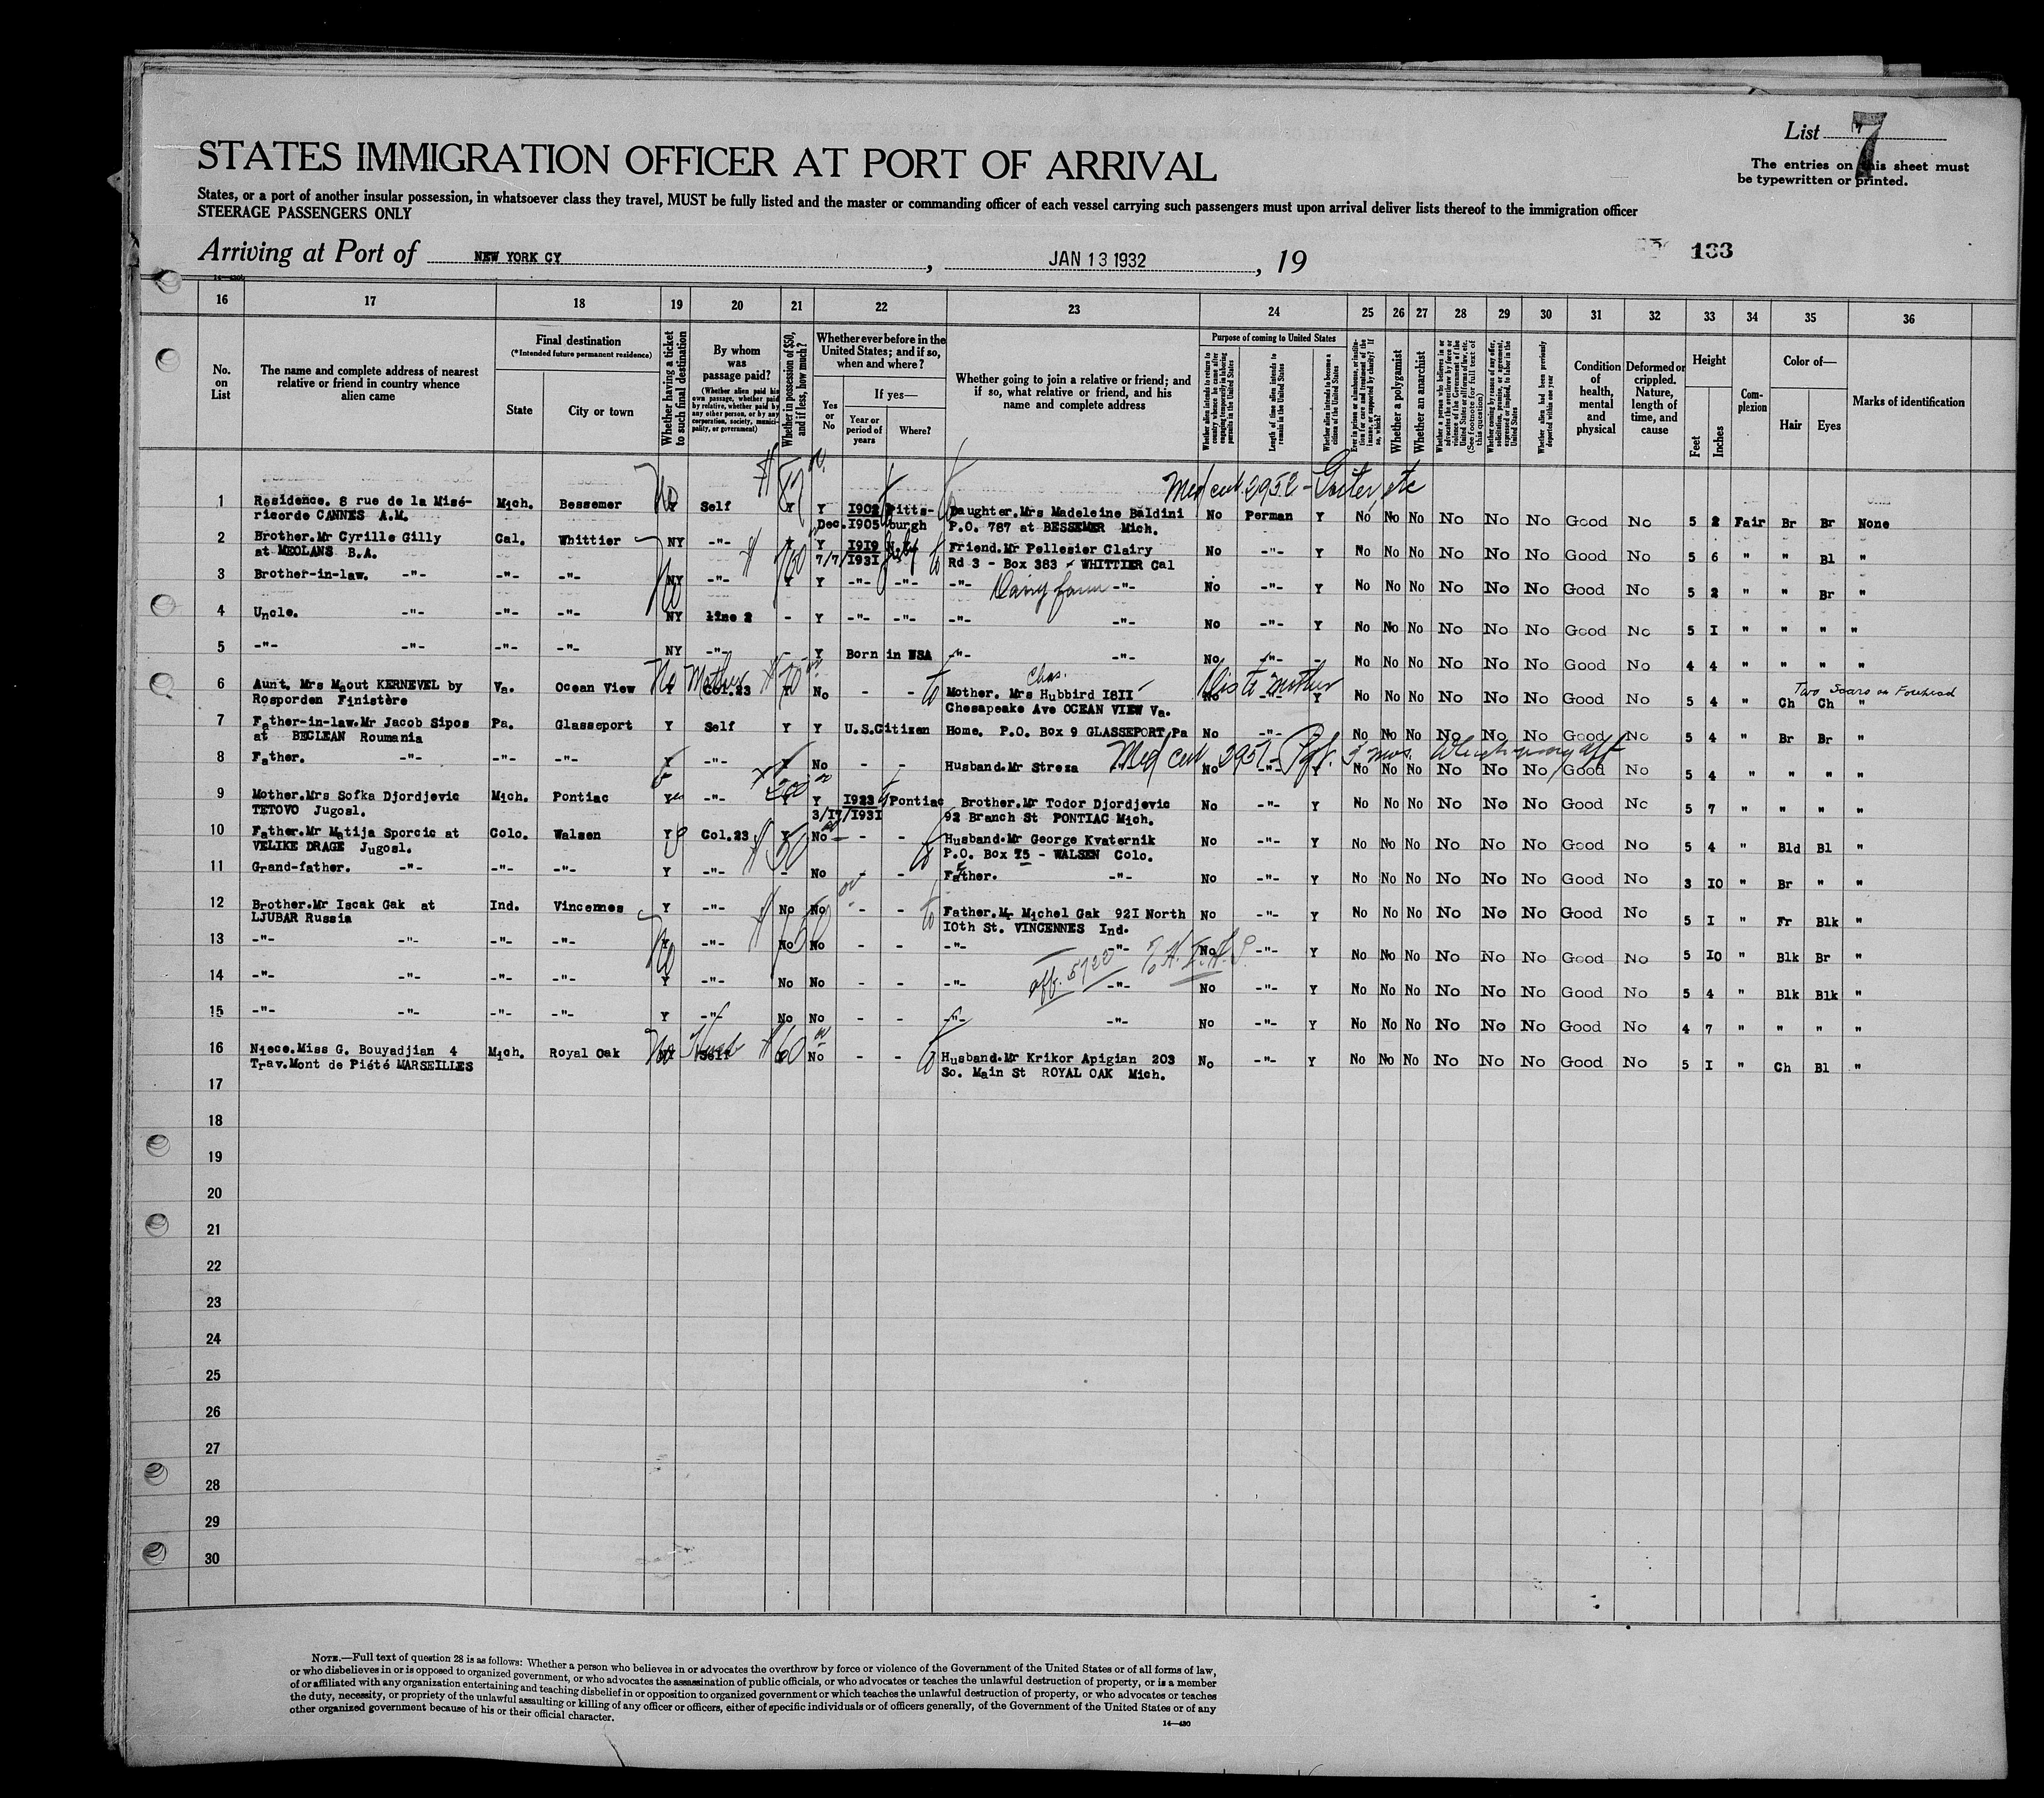 List 7
STATES IMMIGRATION OFFICER AT PORT OF ARRIVAL
The entries on this sheet must
be typewritten or printed.
States, or a port of another insular possession, in whatsoever class they travel, MUST be fully listed and the master or commanding officer of each vessel carrying such passengers must upon arrival deliver lists thereof to the immigration officer
STEERAGE PASSENGERS ONLY
Arriving at Port of NEW YORK CY, JAN 13 1932, 19
133
16 17 18 19 20 21 22 23 24 25 26 27 28 29 30 31 32 33 34 35 36
No. on List
The name and complete address of nearest relative or friend in country whence alien came
Final destination
(*Intended future permanent residence)
State
City or town
Whether having a ticket to such final destination
By whom was passage paid?
(Whether alien paid his own passage, whether paid by relative, whether paid by any other person, or by any corporation, society, municipality, or government)
Whether in possession of $50, and if less, how much?
Whether ever before in the United States; and if so, when and where?
Yes or No
If yes—
Year or period of years
Where?
Whether going to join a relative or friend; and if so, what relative or friend, and his name and complete address
Purpose of coming to United States
Whether alien intends to return to country whence he came after engaging temporarily in laboring pursuits in the United States
Length of time alien intends to remain in the United States
Whether alien intends to become a citizen of the United States
Ever in prison or almshouse, or institution for care and treatment of the insane, or supported by charity? If so, which?
Whether a polygamist
Whether an anarchist
Whether a person who believes in or advocates the overthrow by force or violence of the Government of the United States or all forms of law, etc. (See footnote for full text of this question)
Whether coming by reason of any offer, solicitation, promise, or agreement, expressed or implied, to labor in the United States
Whether alien had been previously deported within one year
Condition of health, mental and physical
Deformed or crippled. Nature, length of time, and cause
Height
Feet
Inches
Complexion
Color of—
Hair
Eyes
Marks of identification
Med cert 2952 - Goiter, etc
1 Residence. 8 rue de la Misé- Mich. Bessemer No Y Self Y Y 1902 Pitts- Daughter.Mrs Madeleine Baldini No Perman Y No No No No No No Good No 5 2 Fair Br Br None
ricorde CANNES A.M. Dec.1905 burgh P.O. 787 at BESSEMER Mich.
2 Brother.Mr Cyrille Gilly Cal. Whittier NY -"- Y Y 1919 Friend.Mr Pellesier Clairy No -"- Y No No No No No No Good No 5 6 " " Bl "
at MEOLANS B.A. 7/7/1931 Rd 3 - Box 383 - WHITTIER Cal
3 Brother-in-law. -"- -"- -"- NY -"- Y Y -"- -"- -"- Dairy farm -"- No -"- Y No No No No No No Good No 5 2 " " Br "
4 Uncle. -"- -"- -"- NY line 2 - Y -"- -"- -"- -"- No -"- Y No No No No No No Good No 5 1 " " " "
5 -"- -"- -"- -"- NY -"- - Y Born in USA -"- -"- No -"- - No No No No No No Good No 4 4 " " " "
Chas. Two Scars on Forehead
6 Aunt. Mrs Maout KERNEVEL by Va. Ocean View No Mother Col.23 Y No - - Mother. Mrs Hubbird 1811 No -"- Y No No No No No No Good No 5 4 " Ch Ch "
Rosporden Finistère Chesapeake Ave OCEAN VIEW Va.
7 Father-in-law.Mr Jacob Sipos Pa. Glasseport Y Self Y Y U.S.Citizen Home. P.O. Box 9 GLASSEPORT Pa No -"- No No No No No No Good No 5 4 " Br Br "
at BECLEAN Roumania
Med cert 2951 -
8 Father. -"- -"- -"- Y -"- Y No - - Husband.Mr Streza No -"- Y No No No No No No Good No 5 4 " " " "
9 Mother.Mrs Sofka Djordjevic Mich. Pontiac Yes -"- Y Y 1923 Pontiac Brother.Mr Todor Djordjevic No -"- Y No No No No No No Good No 5 7 " " " "
TETOVO Jugosl. 3/17/1931 92 Branch St PONTIAC Mich.
10 Father.Mr Matija Sporcic at Colo. Walsen Y Col.23 Y No - - Husband.Mr George Kvaternik No -"- Y No No No No No No Good No 5 4 " Bld Bl "
VELIKE DRAGE Jugosl. P.O. Box 75 - WALSEN Colo.
11 Grand-father. -"- -"- -"- Y -"- - No - - Father. -"- No -"- Y No No No No No No Good No 3 10 " Br " "
12 Brother.Mr Iscak Gak at Ind. Vincennes Y -"- No No - - Father.Mr Michel Gak 921 North No -"- Y No No No No No No Good No 5 1 " Fr Blk "
LJUBAR Russia 10th St. VINCENNES Ind.
13 -"- -"- -"- -"- Y -"- No No - - -"- -"- No -"- Y No No No No No No Good No 5 10 " Blk Br "
14 -"- -"- -"- -"- Y -"- No No - - -"- -"- No -"- Y No No No No No No Good No 5 4 " Blk Blk "
15 -"- -"- -"- -"- Y -"- No No - - -"- -"- No -"- Y No No No No No No Good No 4 7 " " " "
16 Niece.Miss G. Bouyadjian 4 Mich. Royal Oak No Self $60 No - - Husband.Mr Krikor Apigian 203 No -"- Y No No No No No No Good No 5 1 " Ch Bl "
Trav.Mont de Piété MARSEILLES So. Main St ROYAL OAK Mich.
17
18
19
20
21
22
23
24
25
26
27
28
29
30
NOTE.—Full text of question 28 is as follows: Whether a person who believes in or advocates the overthrow by force or violence of the Government of the United States or of all forms of law,
or who disbelieves in or is opposed to organized government, or who advocates the assassination of public officials, or who advocates or teaches the unlawful destruction of property, or is a member
of or affiliated with any organization entertaining and teaching disbelief in or opposition to organized government or which teaches the unlawful destruction of property, or who advocates or teaches
the duty, necessity, or propriety of the unlawful assaulting or killing of any officer or officers, either of specific individuals or of officers generally, of the Government of the United States or of any
other organized government because of his or their official character.
14—430